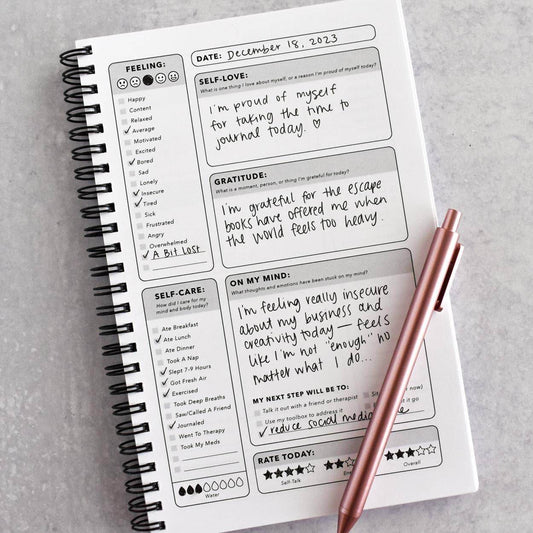 FEELING:
Happy
Content
Relaxed
Average
Motivated
Excited
Bored
Sad
Lonely
Insecure
Tired
Sick
Frustrated
Angry
Overwhelmed
A Bit Lost
SELF-CARE:
How did I care for my
mind and body today?
Ate Breakfast
Ate Lunch
Ate Dinner
Took A Nap
Slept 7-9 Hours
Got Fresh Air
Exercised
Took Deep Breaths
Saw/Called A Friend
Journaled
Went To Therapy
Took My Meds
Water
DATE: December 18, 2023
SELF-LOVE:
What is one thing I love about myself, or a reason I'm proud of myself today?
I'm proud of myself
for taking the time to
journal today. ♡
GRATITUDE:
What is a moment, person, or thing I'm grateful for today?
I'm grateful for the escape
books have offered me when
the world feels too heavy.
ON MY MIND:
What thoughts and emotions have been stuck on my mind?
I'm feeling really insecure
about my business and
creativity today — feels
like I'm not "enough" no
matter what I do...
MY NEXT STEP WILL BE TO:
Talk it out with a friend or therapist
now)
Use my toolbox to address it
reduce social media
RATE TODAY:
Self-Talk
Overall